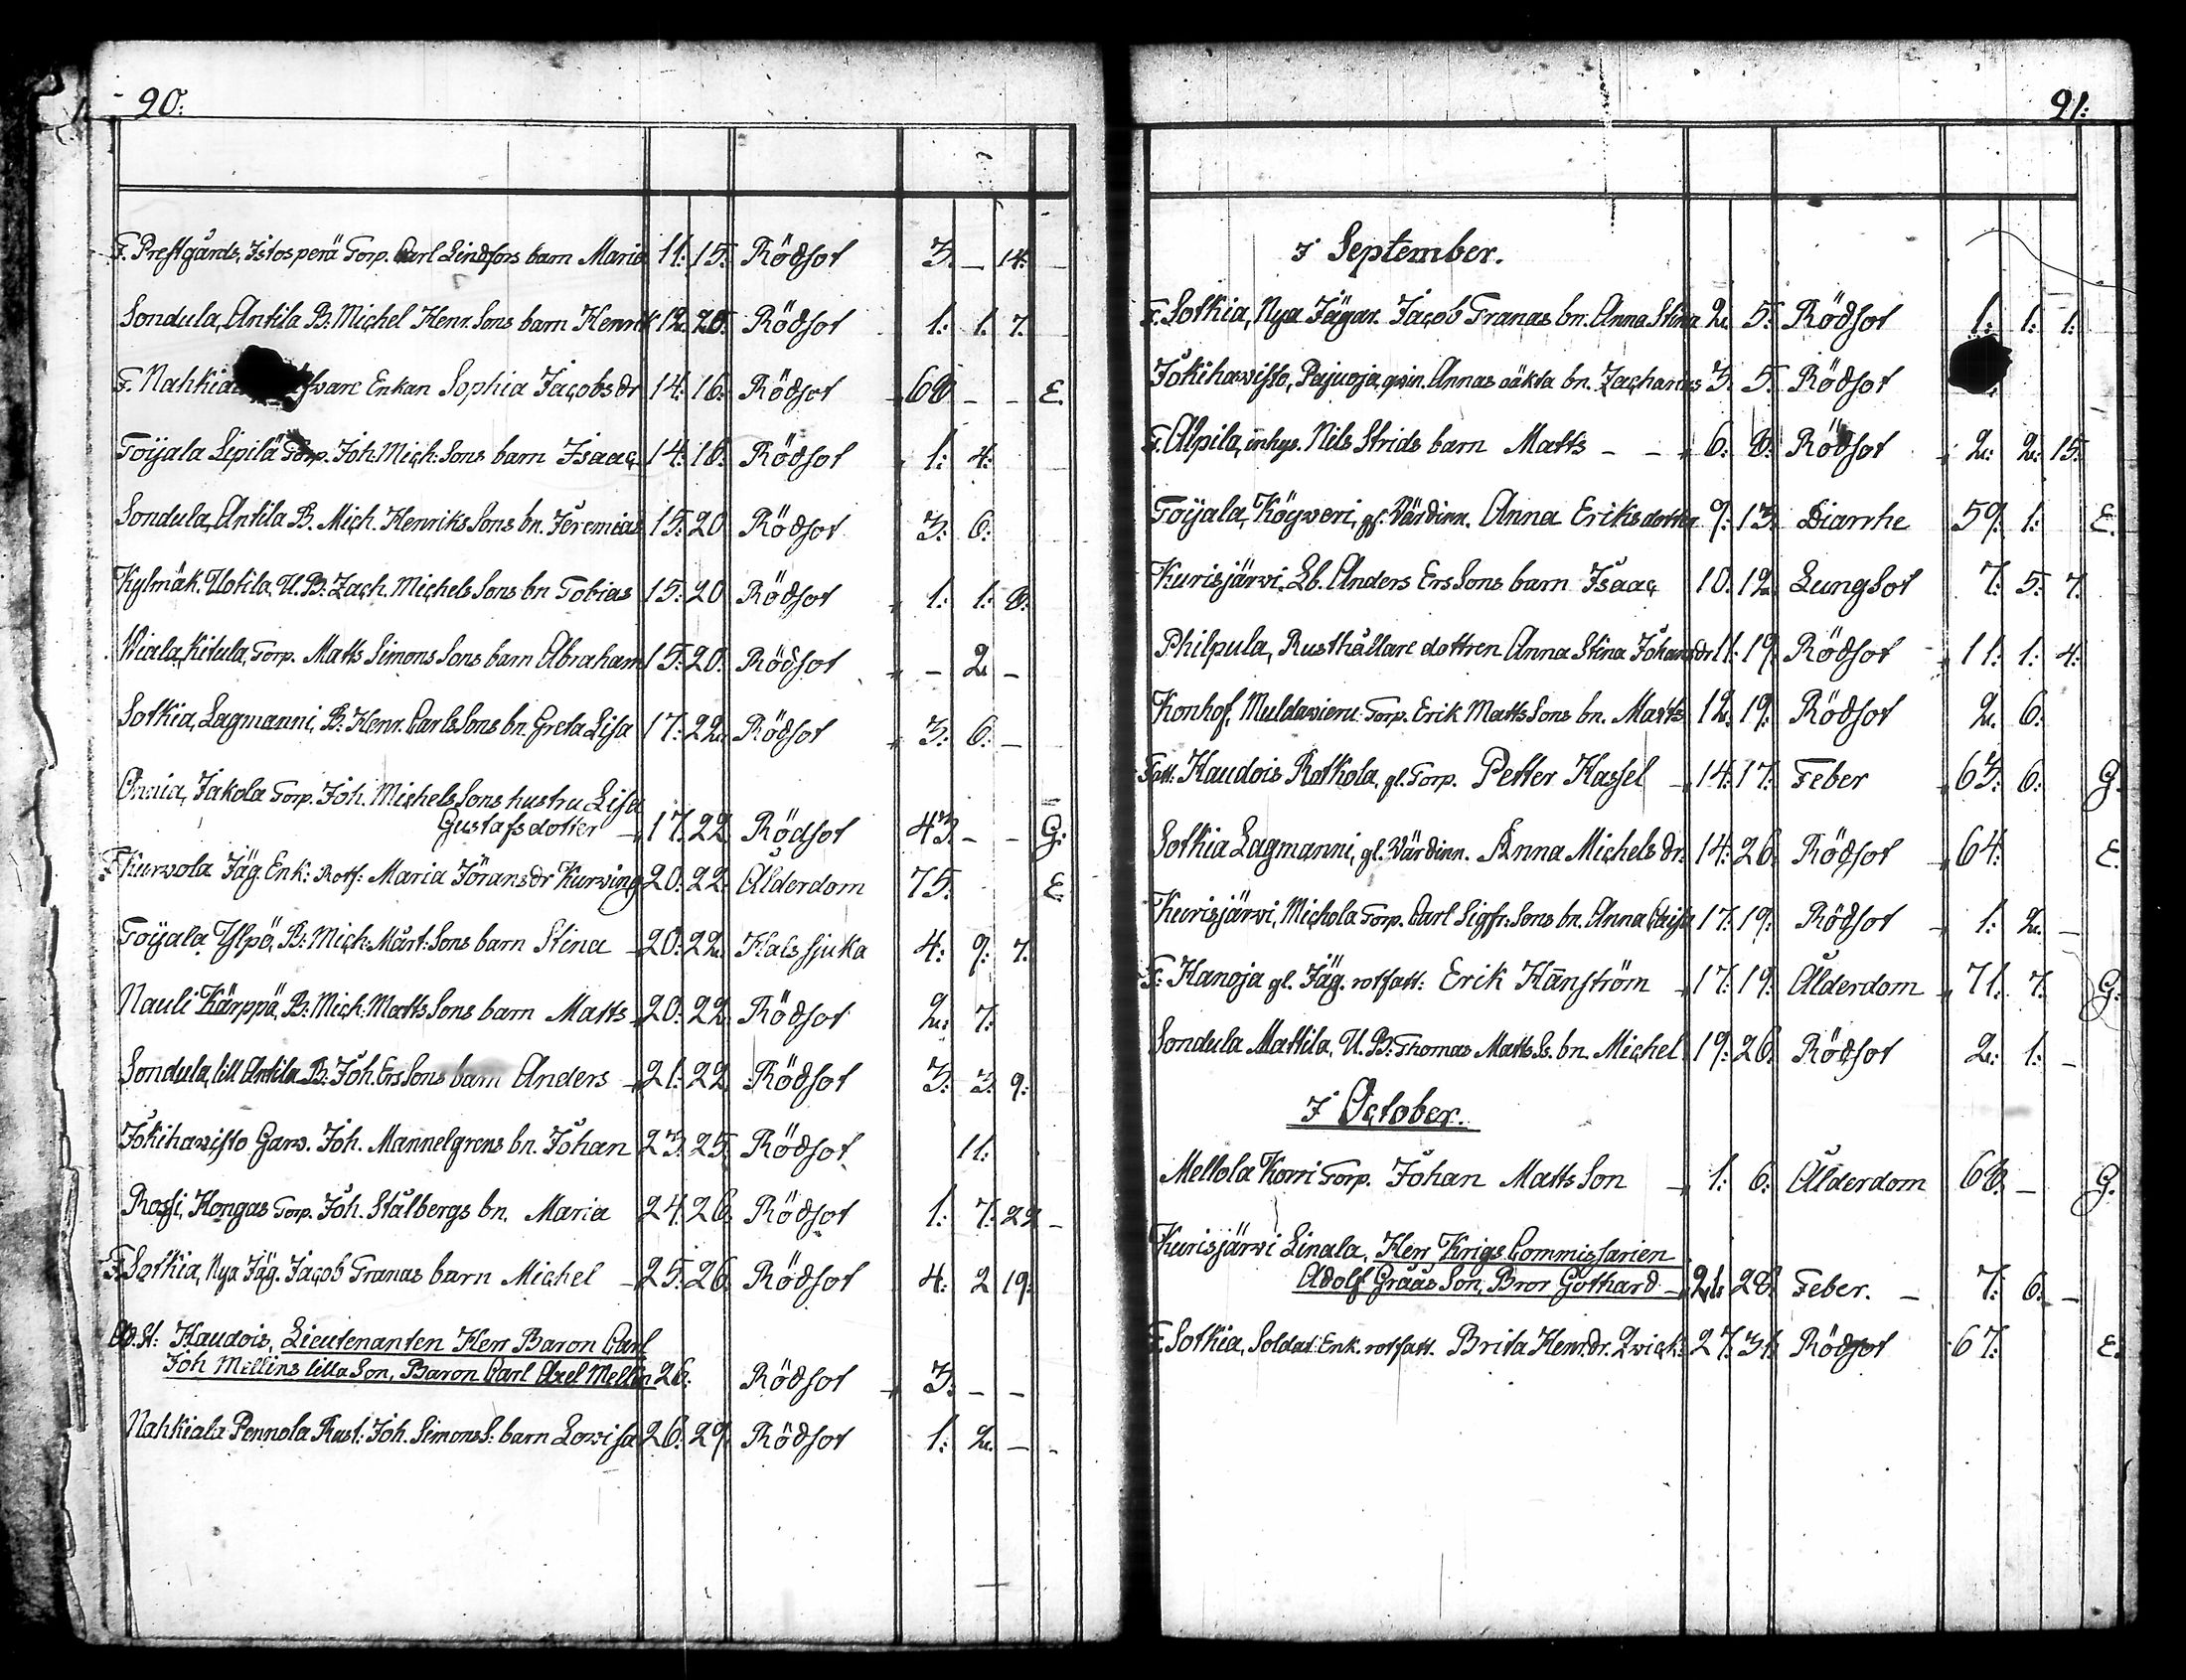 90:
F. Prestgårds, Istosperä Torp. Carl Lindfors barn Maria 11: 15: Rödsot 3. – 14: –
Sondula, Antila B: Michel Henr. Sons barn Henrik 12: 20: Rödsot 1: 1: 7:
F. Enkan Sophia Jacobsdr 14: 16: Rödsot 68 – – E.
Toijala Lipilä Torp. Joh: Mich: Sons barn Isaac 14: 16: Rödsot 1: 4:
Sondula, Antila B. Mich. Henriks Sons bn. Jeremias 15: 20 Rödsot 3: 6:
Kylmäk. Uotila, U. B: Zach. Michels Sons bn Tobias 15: 20 Rödsot 1: 1: 8:
Wiala, Kitula, Torp. Matts Simons Sons barn Abraham 15: 20: Rödsot – 2 –
Sotkia, Lagmanni, B: Henr. Carls Sons bn. Greta Lisa 17: 22: Rödsot 3: 6: –
Onnia, Jakola Torp. Joh. Michels Sons hustru Lisa
Gustafsdotter – 17: 22 Rödsot 43. – – G:
F Kurvola Jäg. Enk: Rotf: Maria Göransdr Kurving 20: 22: Ålderdom 75. E.
Toijala Ylpö, B: Mich: Mårt: Sons barn Stina – 20: 22: Halssjuka 4: 9: 7:
Nauli Kärppä, B: Mich: Matts Sons barn Matts 20: 22 Rödsot 2: 7:
Sondula, lill Antila B: Joh. Ers Sons barn Anders – 21: 22 Rödsot 3: 3: 9:
Jokihavisto Garv. Joh. Mannelgrens bn. Johan 23. 25. Rödsot 11:
Rossi, Hongas Torp. Joh. Stålbergs bn. Maria 24. 26. Rödsot 1: 7: 22 –
F. Sotkia, Nya Jäg. Jacob Tranas barn Michel – 25: 26 Rödsot 4: 2 19:
Ad. St: Haudois, Lieutenanten Herr Baron Carl
Joh Mellins lilla Son, Baron Carl Axel Mellin 26: Rödsot 3: – –
Nahkiala Pennola Rust: Joh. Simons S: barn Lovisa 26: 29. Rödsot 1: 2: – –
91:
I September.
F. Sotkia, Nya Jägar. Jacob Tranas bn. Anna Stina 2. 5: Rödsot 1: 1: 1:
Jokihavisto, Pajuoja, qvin. Annas oäkta bn. Zacharias 3. 5. Rödsot
F. Alpila, inhys. Nils Strids barn Matts – – 6: 8: Rödsot 2: 2: 15:
Toijala, Köyveri, gl. Värdinn. Anna Eriksdotter 9: 13. Diarrhe 59. 1: E.
Kurisjärvi, Lb. Anders Ers Sons barn Isaac 10: 12. Lungsot 7: 5: 7:
Philpula, Rusthållare dottren Anna Stina Johansdr 11: 19: Rödsot 11: 1: 4:
Konhof, Muldavieru: Torp. Erik Matts Sons bn. Matts 12. 19: Rödsot 2. 6:
Fatt: Haudois Rotkola, gl. Torp. Petter Hassel – 14: 17: Feber 63: 6: G.
Sotkia Lagmanni, gl. Värdinn. Anna Michelsdr. 14: 26. Rödsot 64: E.
Kurisjärvi, Michola Torp. Carl Sigfr: Sons bn. Anna Caisa 17: 19: Rödsot 1: 2: –
F: Hanoja gl. Jäg. rotfatt: Erik Hanström – 17: 19: Ålderdom 71. 7. G.
Sondula Mattila, U. B: Thomas Matts Ss. bn. Michel 19: 26: Rödsot 2: 1: –
I October.
Mellola Korri Torp. Johan Matts Son – 1: 6: Ålderdom 68. – G.
Kurisjärvi Linala, Herr Krigs Commissarien
Adolf Graas Son, Bror Gothard – 21: 28: Feber. – 7: 6: –
F. Sotkia, Soldat: Enk. rotfatt. Brita Henr. dr. Qvick: 27: 31: Rödsot 67: E.